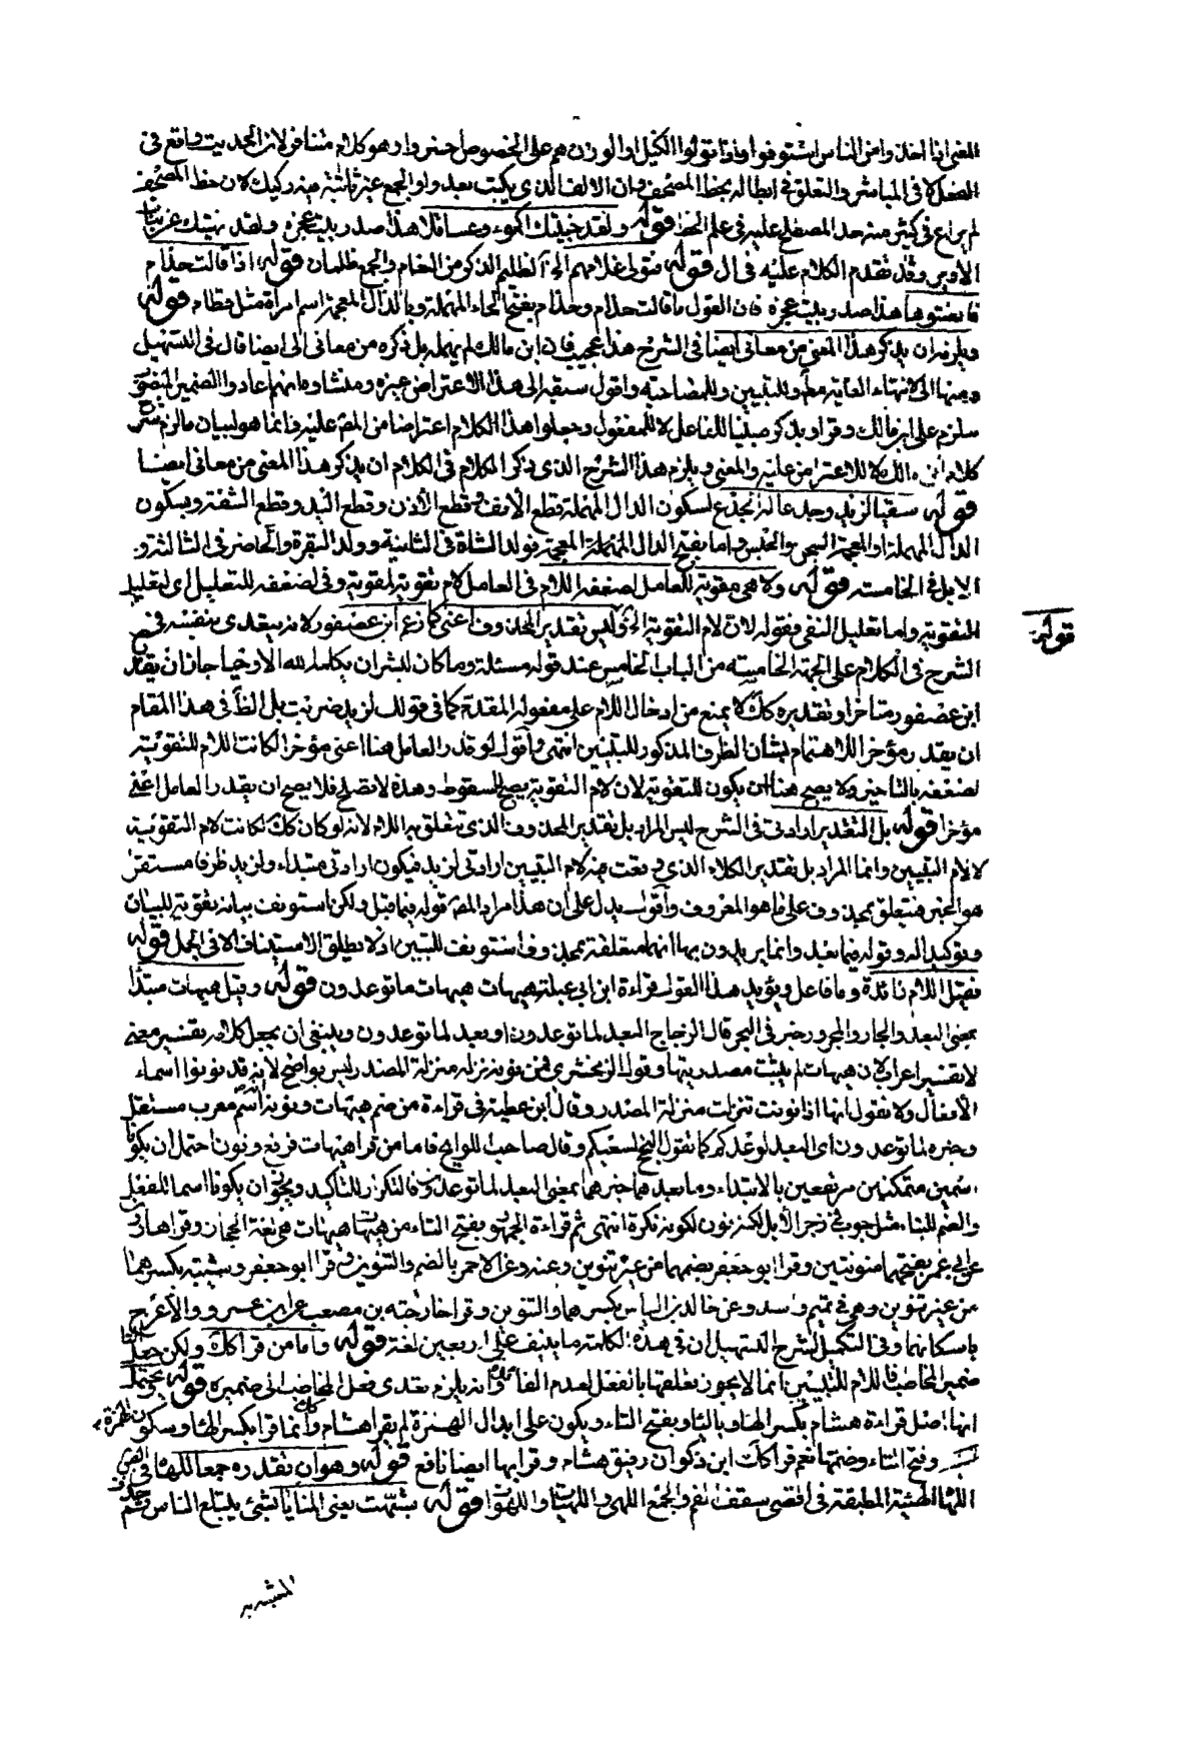 المعنى اذا اخذوا من الناس استوفوا واذا تولوا الكيل او الوزن هم على الخصوص اخسروا وهو كلام متنافر لان الحديث واقع في
الفعل لا في المباشر والتعلق في ابطاله بخط المصحف وان الالف الذي يكتب بعد واو الجمع غير ثابتة فيه ركيك لان خط المصحف
لم يراع في كثير منه حد المصطلح عليه في علم الخط قوله ولقد جنيتك اكمؤا وعساقلا هذا صدر بيت عجزه ولقد نهيتك عن بنات
الاوبر وقد تقدم الكلام عليه في ال قوله فتولى غلامهم الخ الظليم الذكر من النعام والجمع ظلمان قوله اذا قالت حذام
فانصتوها هذا صدر بيت عجزه فان القول ما قالت حذام وحذام بفتح الحاء المهملة وبالذال المعجمة اسم امراة مثل قطام قوله
ويلزمه ان يذكر هذا المعنى من معاني ايضا في الشرح هذا عجيب فان ابن مالك لم يهمله بل ذكره من معاني الى ايضا قال في التسهيل
ومنها الى لانتهاء الغاية مطلقا وللتبيين وللمصاحبة واقول سبقه الى هذا الاعتراض غيره ومنشاوه انهم اعادوا الضمير المنصوب
سلزم على ابن مالك وقراو يذكر مبنيا للفاعل لا للمفعول وجعلوا هذا الكلام اعتراضا من المص عليه وانما هو لبيان ما لزم من
كلام ابن مالك لا للاعتراض عليه والمعنى ويلزم هذا الشرح الذي ذكر الكلام في الكلام ان يذكر هذا المعنى من معاني ايضا
قوله سقيا لزيد وجدعا له الجدع بسكون الدال المهملة قطع الانف وقطع الاذن وقطع اليد وقطع الشفة وبسكون
الدال المهملة او المعجمة السجن والحبس واما بفتح الدال المهملة المعجمة فولد الشاة في الثانية وولد البقرة والحافر في الثالثة و
الابل في الخامسة قوله ولا هي مقوية للعامل لضعفه اللام في العامل لام تقوية لمقوية وفي لضعفه للتعليل اي لتعليل
التقوية واما تعليل النفي فقوله لان لام التقوية الخ قوله وليس تقدير المحذوف اعني كما زعم ابن عصفور لانه يتعدى بنفسه في
الشرح في الكلام على الجهة الخامسة من الباب الخامس عند قوله مسئلة وما كان لبشر ان يكلمه الله الا وحيا جاز ان يقدر
ابن عصفور متاخرا وتقديره كذلك لا يمنع من ادخال اللام على مفعوله المقدم كما في قولك لزيد ضربت بل الظ في هذا المقام
ان يقدر مؤخرا للاهتمام بشان الظرف المذكور للتبيين انتهى واقول لو قدر العامل هنا اعني مؤخرا لكانت اللام للتقوية
لضعفه بالتاخير ولا يصح هنا ان يكون للتقوية لان لام التقوية يصح السقوط وهذه لا تصلح فلا يصح ان يقدر العامل اعني
مؤخرا قوله بل التقدير ارادتي في الشرح ليس المراد بل تقدير المحذوف الذي تتعلق به اللام لانه لو كان كذلك لكانت لام التقوية
لا لام التبيين وانما المراد بل تقدير الكلام الذي وقعت فيه لام التبيين ارادتي لزيد فيكون ارادتي مبتداء ولزيد ظرفا مستقرا
هو الخبر فيتعلق بمحذوف على ما هو المعروف واقول يدل على ان هذا مراد المص قوله فيما قبل ولكن استونف بيانه تقوية للبيان
وتوكيدا له وقوله فيما بعد وانما يريدون بها انها متعلقة بمحذوف استونف للتبيين اذ لا يطلق الاستيناف الا في الجمل قوله
فقيل اللام زائدة وما فاعل ويؤيد هذا القول قراءة ابن ابي عبلة هيهات هيهات ما توعدون قوله وقيل هيهات مبتدا
بمعنى البعد والجار والمجرور خبر في البحر قال الزجاج البعد لما توعدون او بعد لما توعدون وينبغي ان يجعل كلامه تفسير معنى
لا تفسير اعراب لان هيهات لم يثبت مصدريتها وقول الزمخشري فمن نونه نزله منزلة المصدر ليس بواضح لانه قد نونوا اسماء
الافعال ولا نقول انها اذا نونت تنزلت منزلة المصدر وقال ابن عطية في قراءة من ضم هيهات ونونه اسم معرب مستقل
وخبره لما توعدون اي البعد لوعدكم كما تقول النجح لسعيكم وقال صاحب اللوامح فاما من قرا هيهات فرفع ونون احتمل ان يكونا
اسمين متمكنين مرتفعين بالابتداء وما بعدهما خبرهما بمعنى البعد لما توعدون فالتكرار للتاكيد ويجوز ان يكونا اسما للفعل
والضم للبناء مثل حوب في زجر الابل لكنه نون لكونه نكرة انتهى ثم قراءة الجمهور بفتح التاء من هيهات هيهات هي لغة الحجاز وقراها
عن ابي عمر بفتحهما منونتين وقرا ابو جعفر بضمهما من غير تنوين وعنه وعن الاحمر بالضم والتنوين وقرا ابو جعفر وشيبة بكسرهما
من غير تنوين وهي في تميم واسد وعن خالد بن الياس بكسرهما والتنوين وقرا خارجة بن مصعب عن ابن عمرو والاعرج
باسكانهما وفي التكميل لشرح التسهيل ان في هذه الكلمة ما ينيف على اربعين لغة قوله واما من قرا كذلك ولكن جعل التاء
ضمير المخاطب فاللام للتبيين انما لا يجوز تعلقها بالفعل لعدم الفائدة وانه يلزم تعدى فعل المخاطب الى ضميره قوله يحتمل
انها اصل قراءة هشام بكسر الهاء وبالياء وبفتح التاء ويكون على ابدال الهمزة لم يقرا هشام كذلك وانما قرا بكسر الهاء وسكون الهمزة
وفتح التاء وضمها نعم قرا كذلك ابن ذكوان رفيق هشام وقرا بها ايضا نافع قوله وهو ان نقدره جمعا للهاة في
اللهاة الهنية المطبقة في اقصى سقف الفم والجمع اللهى واللهيات واللهوات قوله شبهت يعني المنايا بشئ يبتلع الناس ثم حذف
قوله
المشبه به